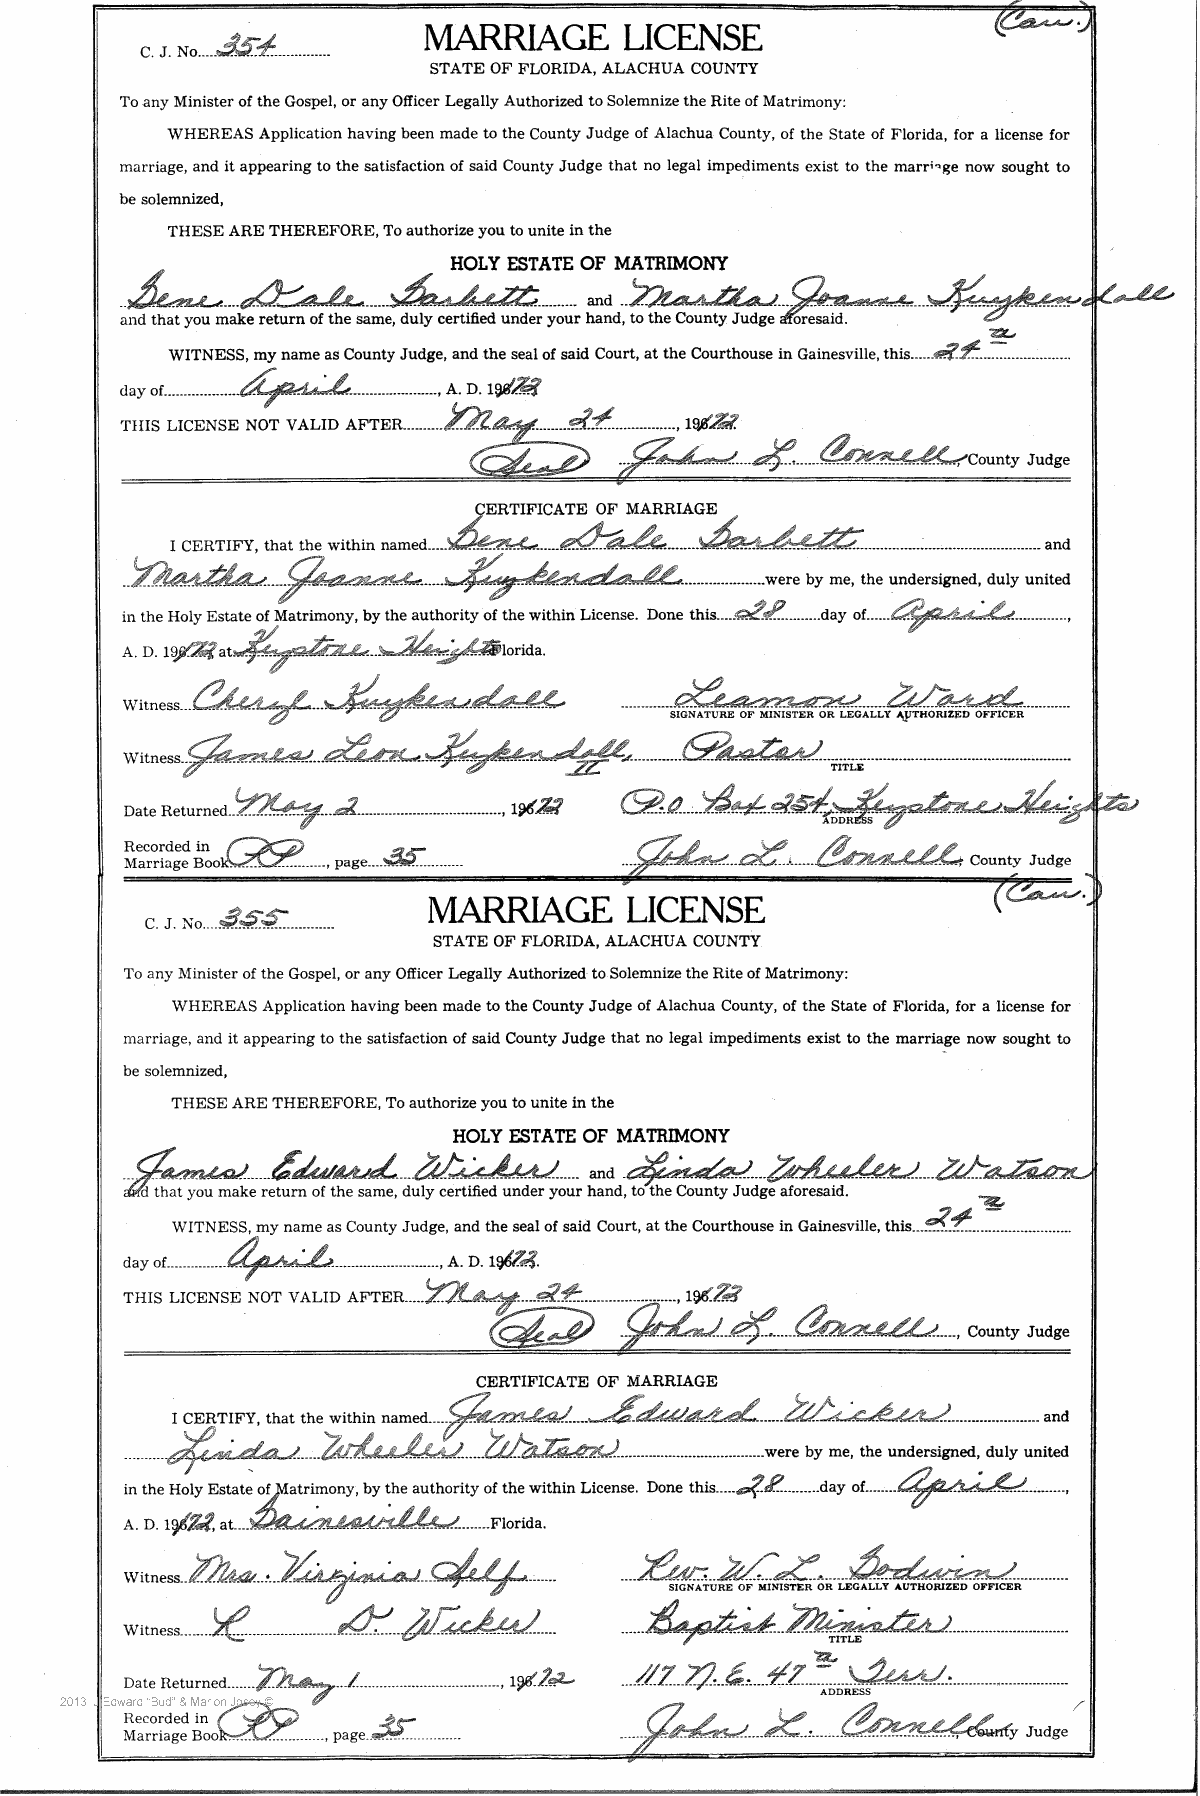 (Cau.)
C. J. No. 354 MARRIAGE LICENSE
STATE OF FLORIDA, ALACHUA COUNTY
To any Minister of the Gospel, or any Officer Legally Authorized to Solemnize the Rite of Matrimony:
WHEREAS Application having been made to the County Judge of Alachua County, of the State of Florida, for a license for
marriage, and it appearing to the satisfaction of said County Judge that no legal impediments exist to the marriage now sought to
be solemnized,
THESE ARE THEREFORE, To authorize you to unite in the
HOLY ESTATE OF MATRIMONY
Gene Dale Garbett and Martha Joanne Kuykendall
and that you make return of the same, duly certified under your hand, to the County Judge aforesaid.
WITNESS, my name as County Judge, and the seal of said Court, at the Courthouse in Gainesville, this 24th
day of April, A. D. 1972
THIS LICENSE NOT VALID AFTER May 24, 1972
(Seal) John L. Connell, County Judge
CERTIFICATE OF MARRIAGE
I CERTIFY, that the within named Gene Dale Garbett and
Martha Joanne Kuykendall were by me, the undersigned, duly united
in the Holy Estate of Matrimony, by the authority of the within License. Done this 28 day of April,
A. D. 1972, at Keystone Heights Florida.
Witness Cheryl Kuykendall Leamon Ward
SIGNATURE OF MINISTER OR LEGALLY AUTHORIZED OFFICER
Witness James Leon Kuykendall, II Pastor
TITLE
Date Returned May 2, 1972 P.O Box 254, Keystone Heights
ADDRESS
Recorded in
Marriage Book PP, page 35 John L. Connell, County Judge
(Cau.)
C. J. No. 355 MARRIAGE LICENSE
STATE OF FLORIDA, ALACHUA COUNTY
To any Minister of the Gospel, or any Officer Legally Authorized to Solemnize the Rite of Matrimony:
WHEREAS Application having been made to the County Judge of Alachua County, of the State of Florida, for a license for
marriage, and it appearing to the satisfaction of said County Judge that no legal impediments exist to the marriage now sought to
be solemnized,
THESE ARE THEREFORE, To authorize you to unite in the
HOLY ESTATE OF MATRIMONY
James Edward Wicker and Linda Wheeler Watson
and that you make return of the same, duly certified under your hand, to the County Judge aforesaid.
WITNESS, my name as County Judge, and the seal of said Court, at the Courthouse in Gainesville, this 24th
day of April, A. D. 1972.
THIS LICENSE NOT VALID AFTER May 24, 1972
(Seal) John L. Connell, County Judge
CERTIFICATE OF MARRIAGE
I CERTIFY, that the within named James Edward Wicker and
Linda Wheeler Watson were by me, the undersigned, duly united
in the Holy Estate of Matrimony, by the authority of the within License. Done this 28 day of April,
A. D. 1972, at Gainesville Florida.
Witness Mrs. Virginia Self Rev. W. L. Godwin
SIGNATURE OF MINISTER OR LEGALLY AUTHORIZED OFFICER
Witness R D. Wicker Baptist Minister
TITLE
Date Returned May 1, 1972 117 N.E. 47th Terr.
ADDRESS
2013 J Edward "Bud" & Marion Josey ©
Recorded in
Marriage Book PP, page 35 John L. Connell, County Judge